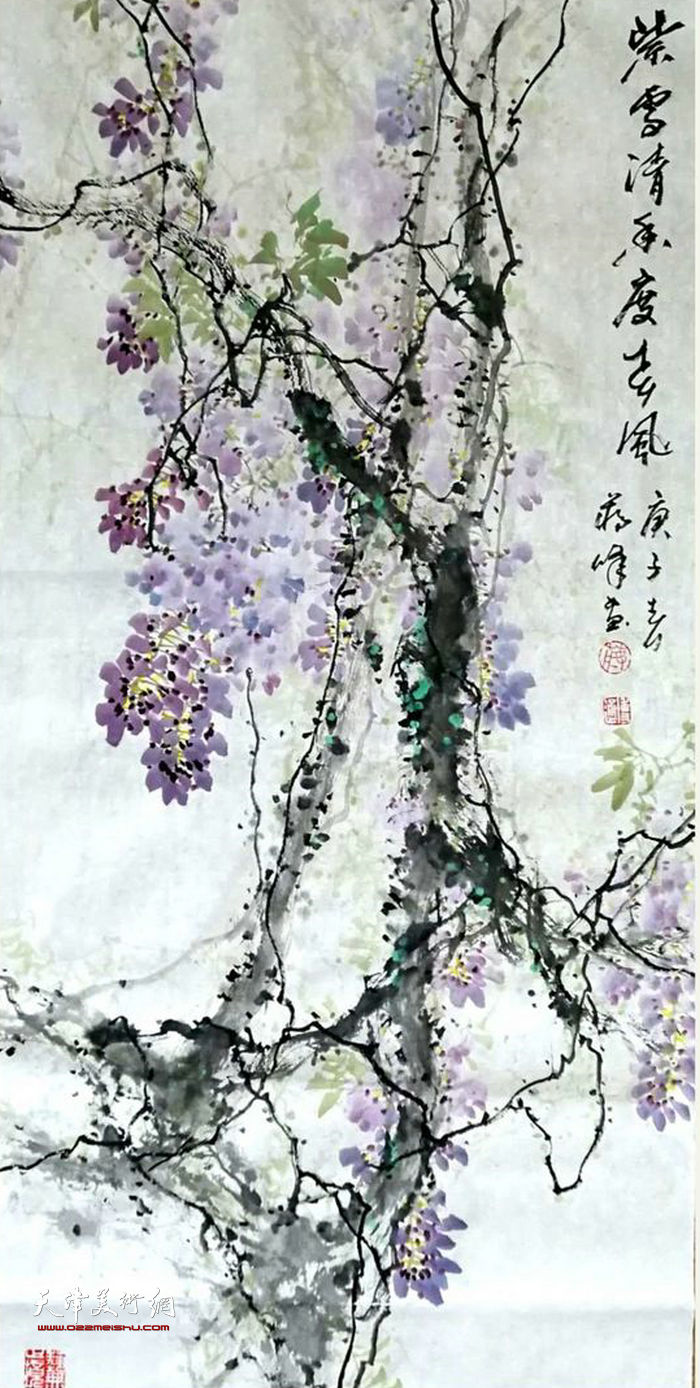 紫雪清香度春风
庚子春
蒋峰画
天津美術網
www.022meishu.com